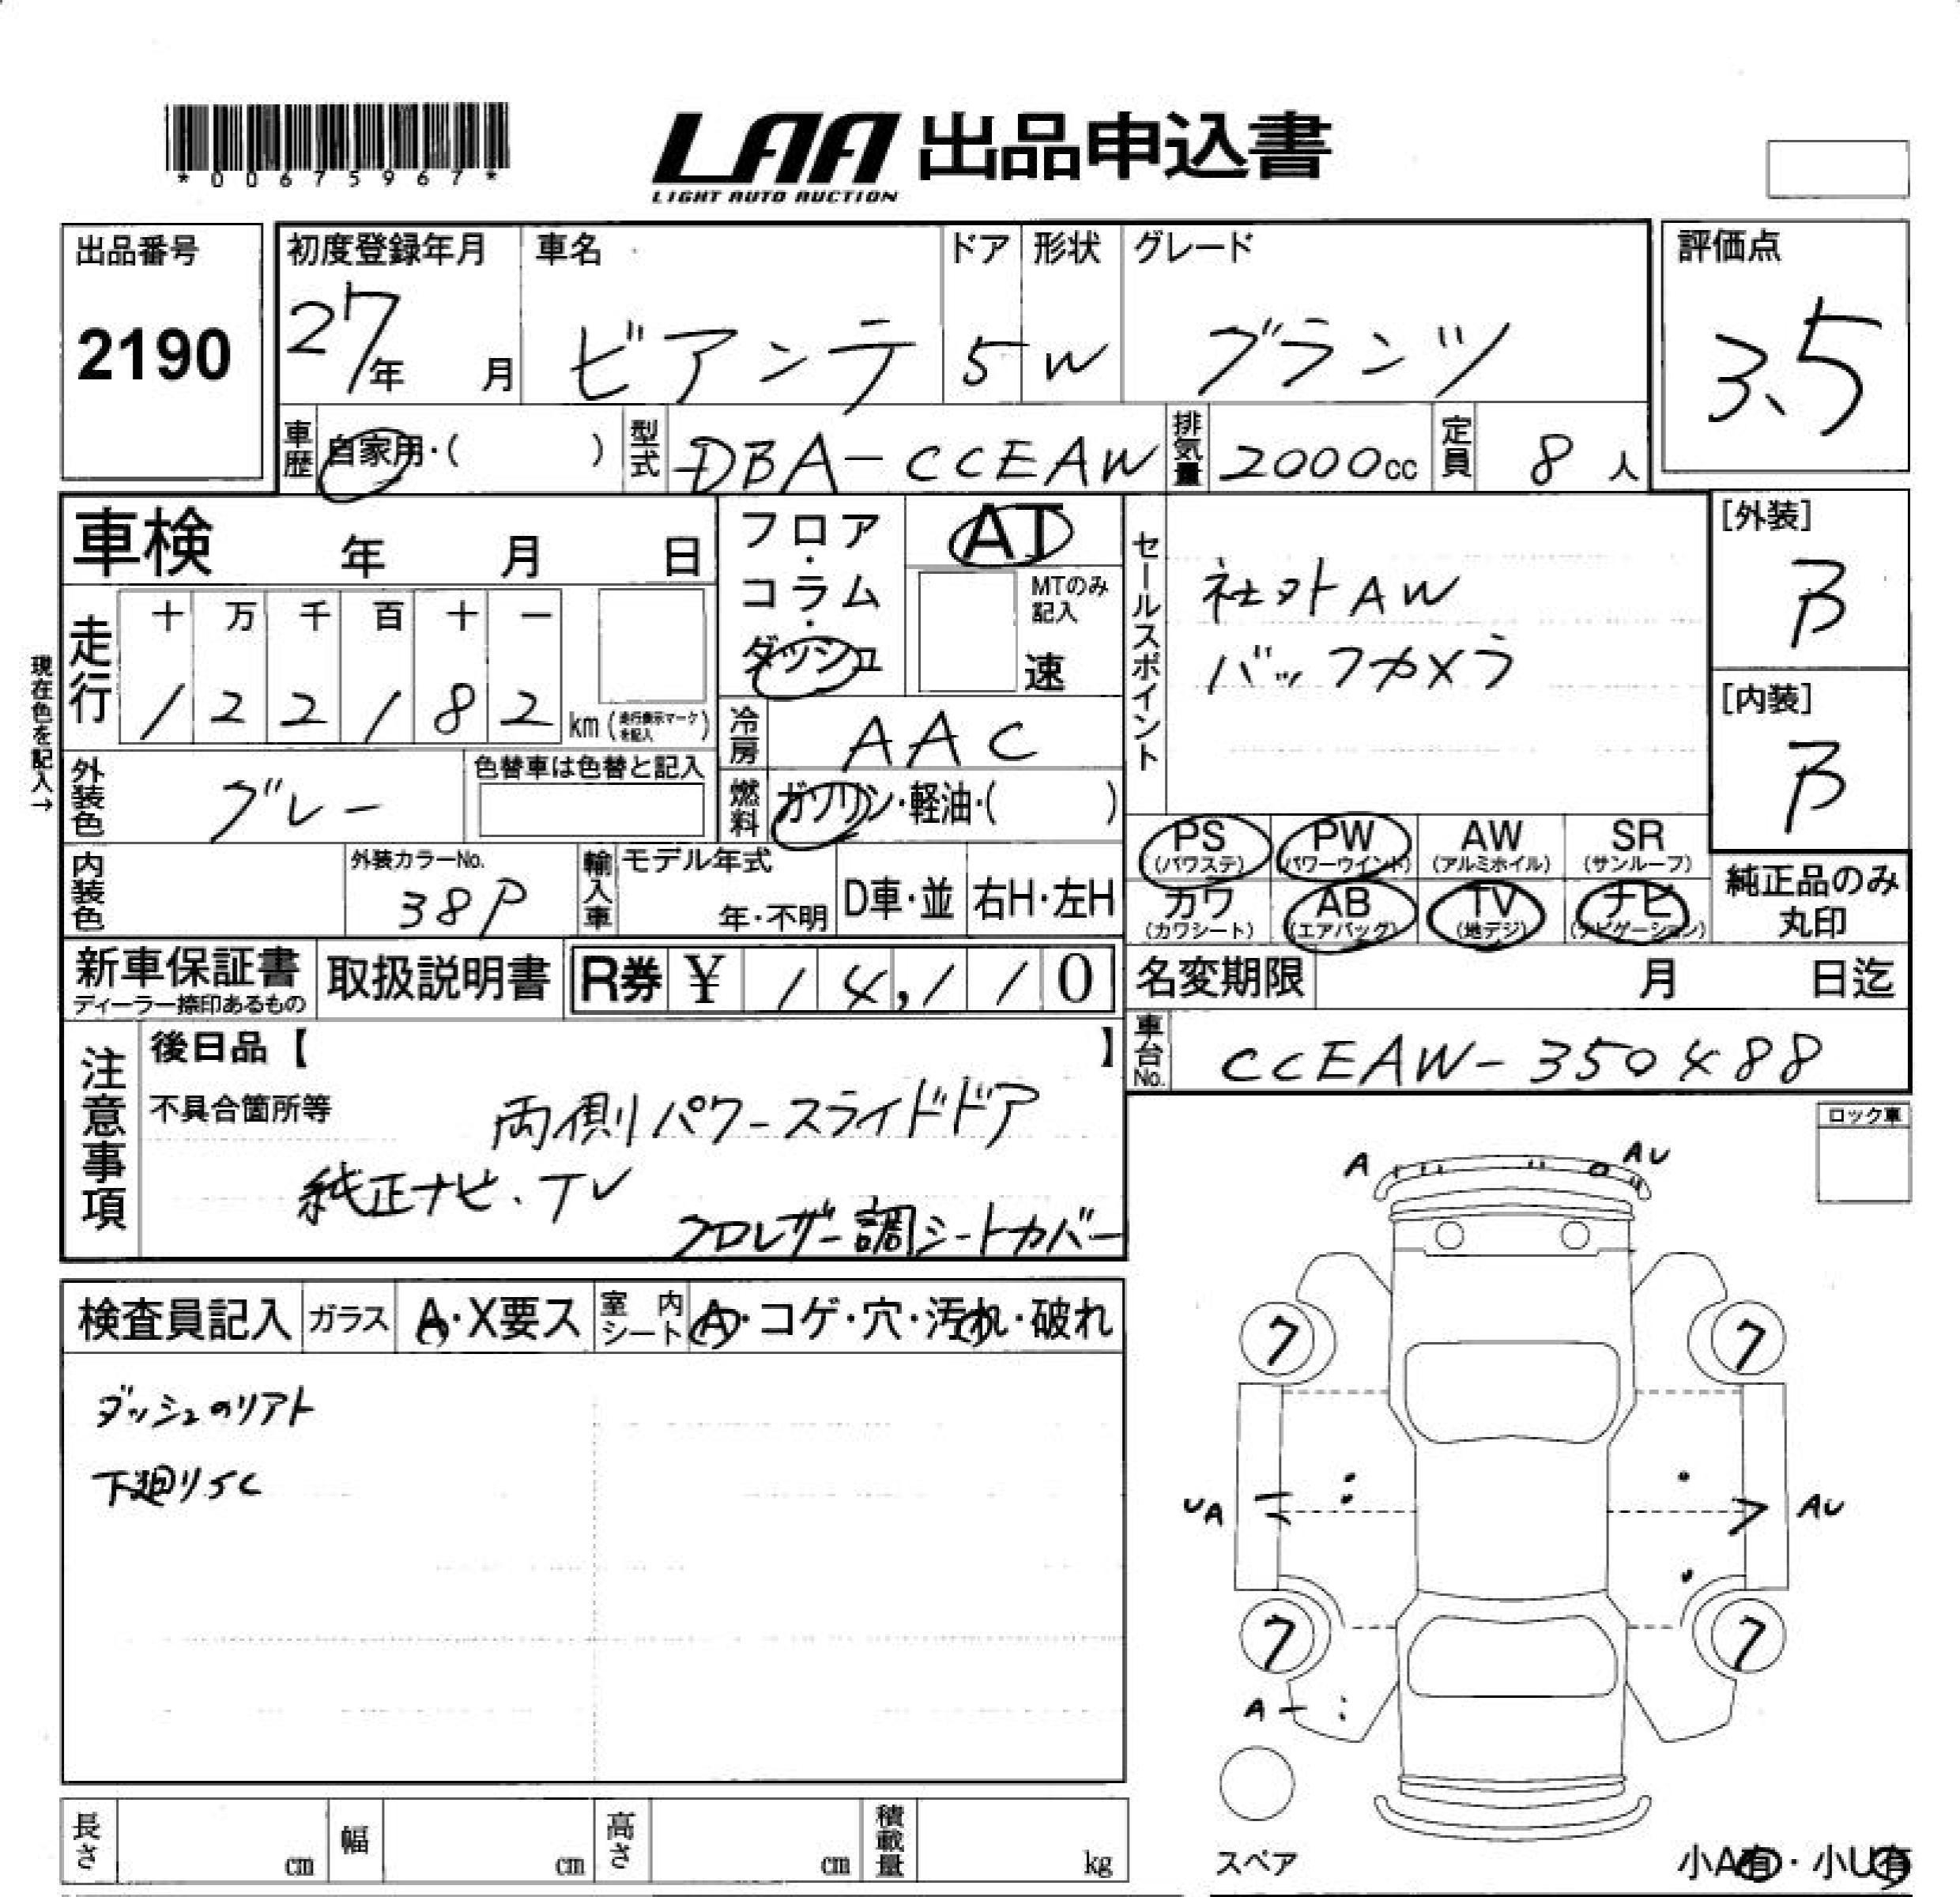 *00675967*
LAA 出品申込書
LIGHT AUTO AUCTION
出品番号
2190
初度登録年月
27年 月
車名
ビアンテ
ドア
5
形状
W
グレード
グランツ
評価点
3.5
車歴
自家用・( )
型式
DBA-CCEAW
排気量
2000cc
定員
8人
車検 年 月 日
フロア・コラム・ダッシュ
AT
MTのみ記入
速
セールスポイント
社外AW
バックカメラ
[外装]
B
[内装]
B
現在色を記入→
走行
十 万 千 百 十 一
1 2 2 1 8 2 km (走行表示マークを記入)
冷房
AAC
外装色
グレー
色替車は色替と記入
燃料
ガソリン・軽油・( )
PS (パワステ)
PW (パワーウインド)
AW (アルミホイル)
SR (サンルーフ)
カワ (カワシート)
AB (エアバッグ)
TV (地デジ)
ナビ (ナビゲーション)
純正品のみ
丸印
内装色
外装カラーNo.
38P
輸入車
モデル年式
年・不明
D車・並
右H・左H
新車保証書
ディーラー捺印あるもの
取扱説明書
R券 ¥ 14,110
名変期限 月 日迄
車台No.
CCEAW-350488
注意事項
後日品【 】
不具合箇所等
両側パワースライドドア
純正ナビ・TV
フロレザー調シートカバー
ロック車
検査員記入
ガラス
A・X要ス
室内シート
A・コゲ・穴・汚れ・破れ
ダッシュのリアト
下廻りSC
A
AU
7
7
UA
AU
7
7
A
スペア
小A有・小U有
長さ cm
幅 cm
高さ cm
積載量 kg